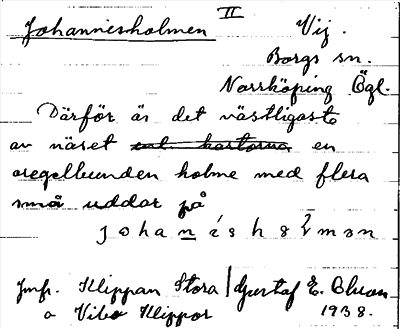 Johannesholmen II Vij.
Borgs sn.
Norrköping Ögl.
Därför är det västligaste
av näset enl. kartorna en
oregelbunden holme med flera
små uddar på
johanishólmən
Jmfr. Klippan Stora / Gustaf E. Cluson
o Vibo Klippor 1938.